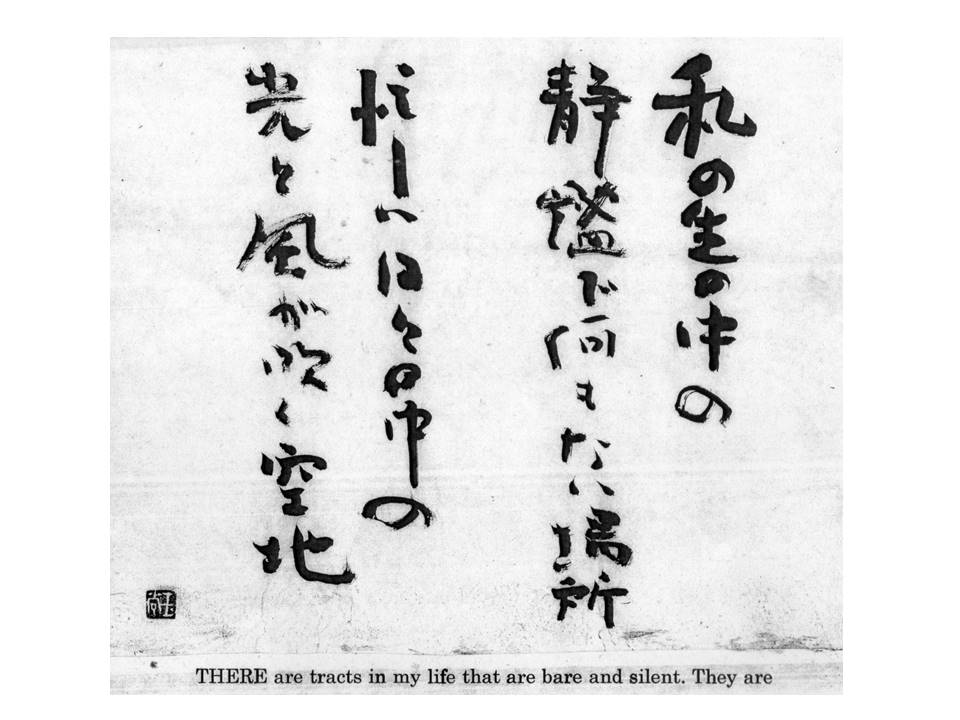 私の生の中の
静謐で何もない場所
忙しい日々の中の
光と風が吹く空地
THERE are tracts in my life that are bare and silent. They are